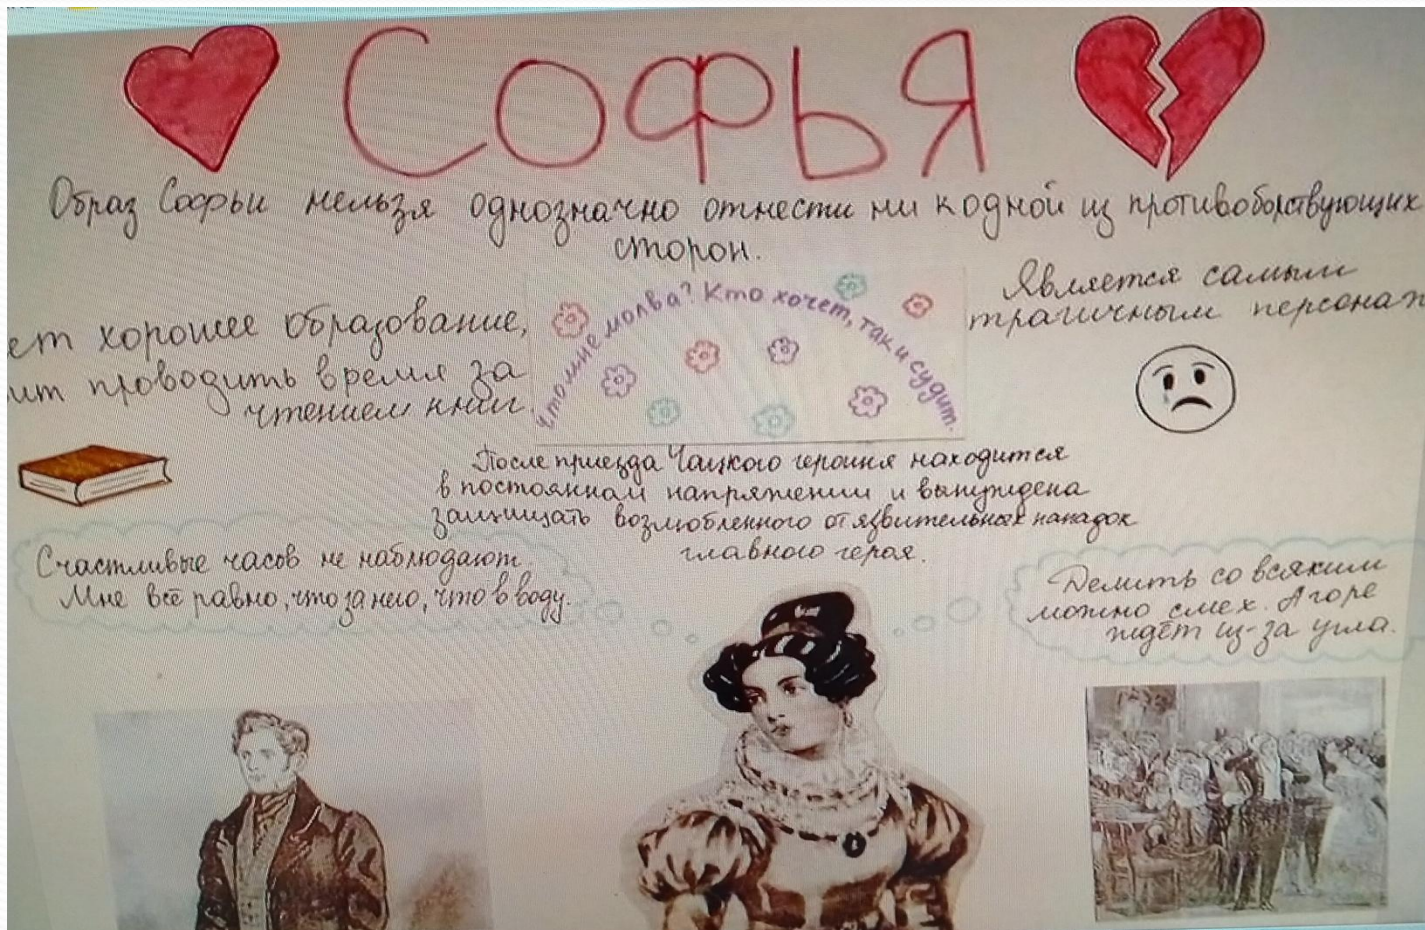 Софья
Образ Софьи нельзя однозначно отнести ни к одной из противоборствующих
сторон.
ет хорошее образование,
ит проводить время за
чтением книг.
что мне молва? Кто хочет, так и судит.
Является самым
трагичным персонаж
После приезда Чацкого героиня находится
в постоянном напряжении и вынуждена
защищать возлюбленного от язвительных нападок
главного героя.
Счастливые часов не наблюдают.
Мне всё равно, что за него, что в воду.
Делить со всяким
можно смех. А горе
ждёт из-за угла.